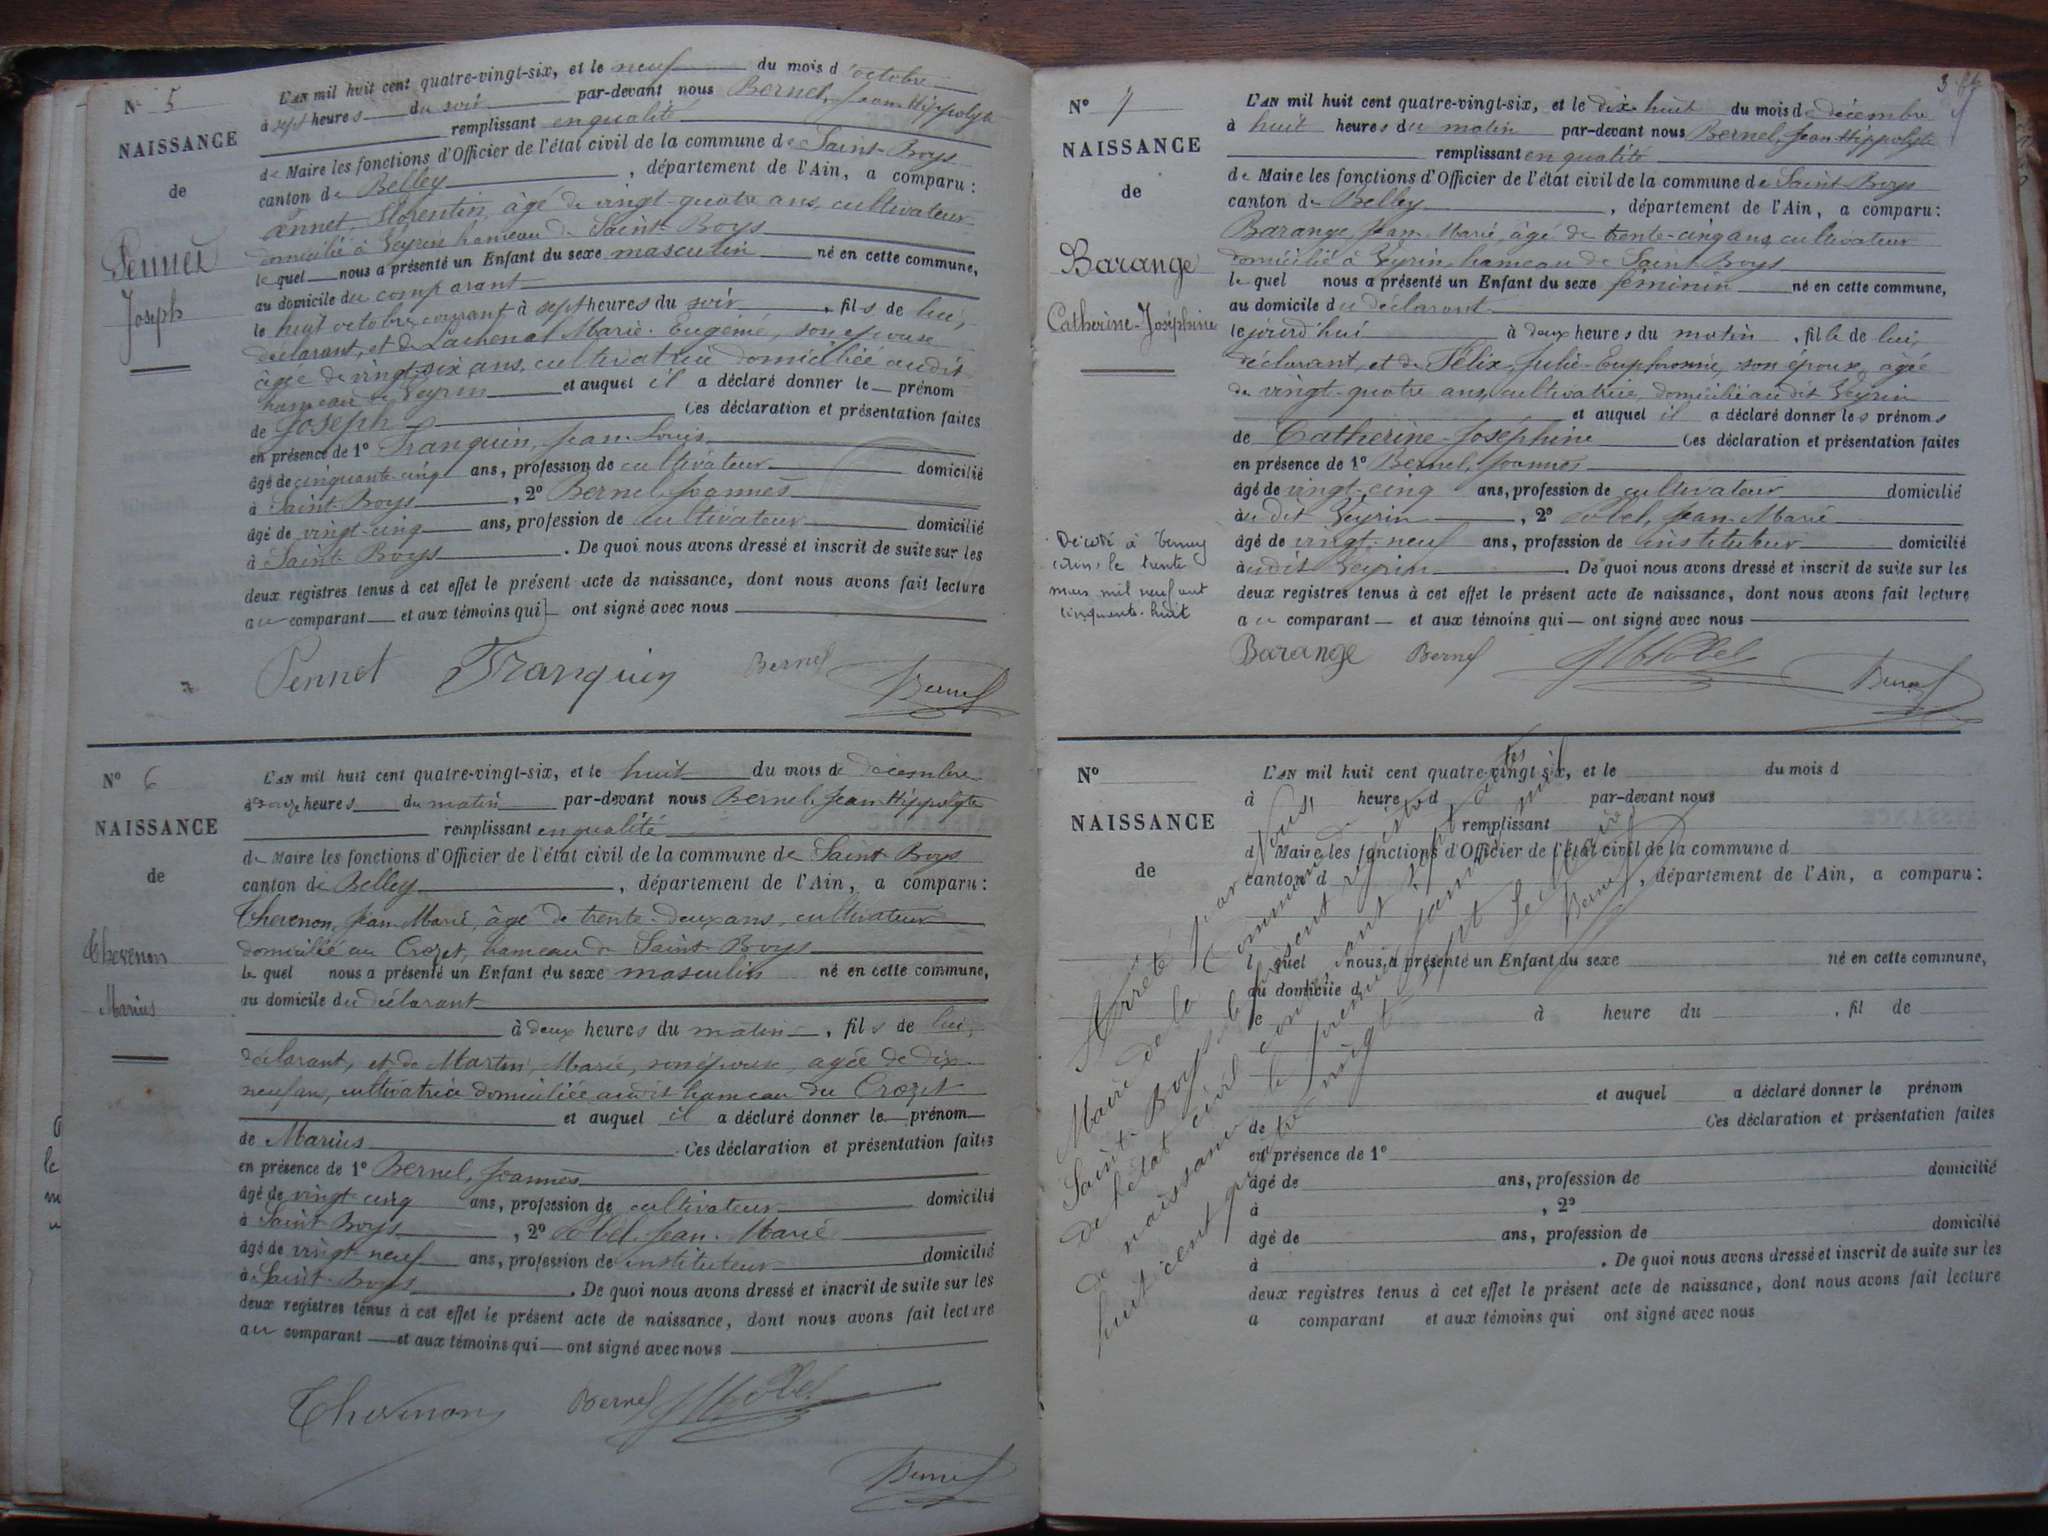 N° 5
NAISSANCE
de
Pennet
Joseph
L'AN mil huit cent quatre-vingt-six, et le neuf du mois d'octobre
à sept heures du soir par-devant nous Bernel, Jean Hippolyte
remplissant en qualité
de Maire les fonctions d'Officier de l'état civil de la commune de Saint-Boys
canton de Belley, département de l'Ain, a comparu:
Pennet, Florentin, âgé de vingt-quatre ans, cultivateur
domicilié à Peyrin hameau de Saint-Boys
le quel nous a présenté un Enfant du sexe masculin né en cette commune,
au domicile du comparant
le huit octobre courant à sept heures du soir, fils de lui,
déclarant, et de Lachenal Marie-Eugénie, son épouse
âgée de vingt-six ans, cultivatrice domiciliée audit
hameau de Peyrin et auquel il a déclaré donner le prénom
de Joseph Ces déclaration et présentation faites
en présence de 1° Franquin, Jean-Louis
âgé de cinquante-cinq ans, profession de cultivateur domicilié
à Saint-Boys, 2° Bernel Joannès
âgé de vingt-cinq ans, profession de cultivateur domicilié
à Saint-Boys. De quoi nous avons dressé et inscrit de suite sur les
deux registres tenus à cet effet le présent acte de naissance, dont nous avons fait lecture
au comparant et aux témoins qui ont signé avec nous
Pennet Franquin Bernel Bernel
N° 6
NAISSANCE
de
Thevenon
Marius
L'AN mil huit cent quatre-vingt-six, et le huit du mois de décembre
à onze heures du matin par-devant nous Bernel, Jean Hippolyte
remplissant en qualité
de Maire les fonctions d'Officier de l'état civil de la commune de Saint-Boys
canton de Belley, département de l'Ain, a comparu:
Thevenon, Jean-Marie, âgé de trente-deux ans, cultivateur
domicilié au Crozet, hameau de Saint-Boys
le quel nous a présenté un Enfant du sexe masculin né en cette commune,
au domicile du déclarant
à deux heures du matin, fils de lui,
déclarant, et de Martin, Marie, son épouse, agée de dix
neuf ans, cultivatrice domiciliée audit hameau du Crozet
et auquel il a déclaré donner le prénom
de Marius Ces déclaration et présentation faites
en présence de 1° Bernel, Joannès
âgé de vingt-cinq ans, profession de cultivateur domicilié
à Saint-Boys, 2° Jean-Marie
âgé de vingt-neuf ans, profession de instituteur domicilié
à Saint-Boys. De quoi nous avons dressé et inscrit de suite sur les
deux registres tenus à cet effet le présent acte de naissance, dont nous avons fait lecture
au comparant et aux témoins qui ont signé avec nous
Thevenon Bernel
Bernel
N° 7
NAISSANCE
de
Barange
Catherine-Joséphine
L'AN mil huit cent quatre-vingt-six, et le dix-huit du mois de décembre
à huit heures du matin par-devant nous Bernel, Jean Hippolyte
remplissant en qualité
de Maire les fonctions d'Officier de l'état civil de la commune de Saint-Boys
canton de Belley, département de l'Ain, a comparu:
Barange, Jean-Marie, âgé de trente-cinq ans, cultivateur
domicilié à Peyrin, hameau de Saint-Boys
le quel nous a présenté un Enfant du sexe féminin né en cette commune,
au domicile du déclarant
le jourd'hui à deux heures du matin, fille de lui,
déclarant, et de Félix, Julie-Euphrosine, son épouse, âgée
de vingt-quatre ans, cultivatrice, domiciliée au dit Peyrin
et auquel il a déclaré donner les prénoms
de Catherine-Joséphine Ces déclaration et présentation faites
en présence de 1° Bernel, Joannès
âgé de vingt-cinq ans, profession de cultivateur domicilié
au dit Peyrin, 2° Jean-Marie
âgé de vingt-neuf ans, profession de instituteur domicilié
audit Peyrin. De quoi nous avons dressé et inscrit de suite sur les
deux registres tenus à cet effet le présent acte de naissance, dont nous avons fait lecture
au comparant et aux témoins qui ont signé avec nous
Décédé à
le trente
mars mil neuf cent
cinquante-huit
Barange Bernel Bernel
N°
NAISSANCE
de
L'AN mil huit cent quatre-vingt-six, et le du mois d
à heure d par-devant nous
remplissant
d Maire les fonctions d'Officier de l'état civil de la commune d
canton d, département de l'Ain, a comparu:
l quel nous a présenté un Enfant du sexe né en cette commune,
au domicile d
le à heure du, fil de
et auquel a déclaré donner le prénom
de Ces déclaration et présentation faites
en présence de 1°
âgé de ans, profession de domicilié
à, 2°
âgé de ans, profession de domicilié
à. De quoi nous avons dressé et inscrit de suite sur les
deux registres tenus à cet effet le présent acte de naissance, dont nous avons fait lecture
a comparant et aux témoins qui ont signé avec nous
Arrêté par Nous,
Maire de la Commune de
Saint-Boys, le présent registre
de l'état civil contenant sept actes
de naissance le premier janvier mil
huit cent quatre-vingt-sept Le Maire
Bernel